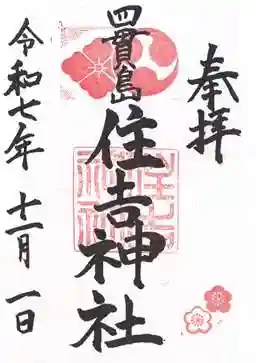 奉拝
四貫島
住吉神社
令和七年 十一月 一日